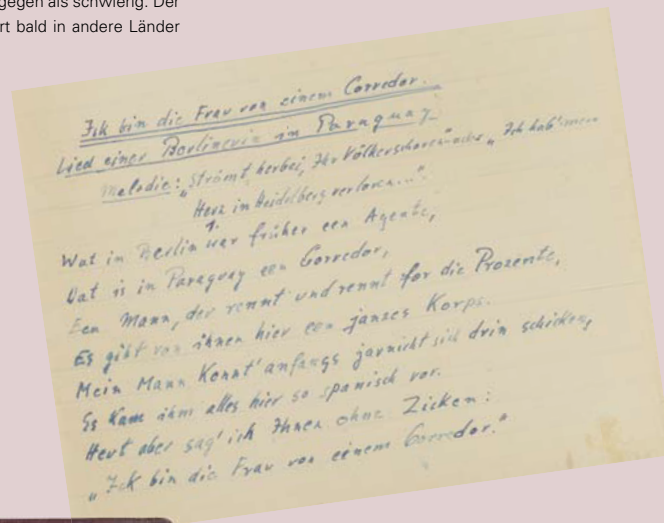 gegen als schwierig. Der
rt bald in andere Länder
Ick bin die Frau von einem Corredor.
Lied einer Berlinerin in Paraguay.
Melodie: „Strömt herbei, Ihr Völkerscharen" oder „Ich hab' mein
Herz in Heidelberg verloren..."
1.
Wat in Berlin war früher een Agente,
Dat is in Paraguay een Corredor,
Een Mann, der rennt und rennt for die Prozente,
Es gibt von ihnen hier een janzes Korps.
Mein Mann konnt' anfangs jarnicht sich drin schicken,
Es kam ihm alles hier so spanisch vor.
Heut aber sag' ick Ihnen ohne Zicken:
„Ick bin die Frau von einem Corredor."